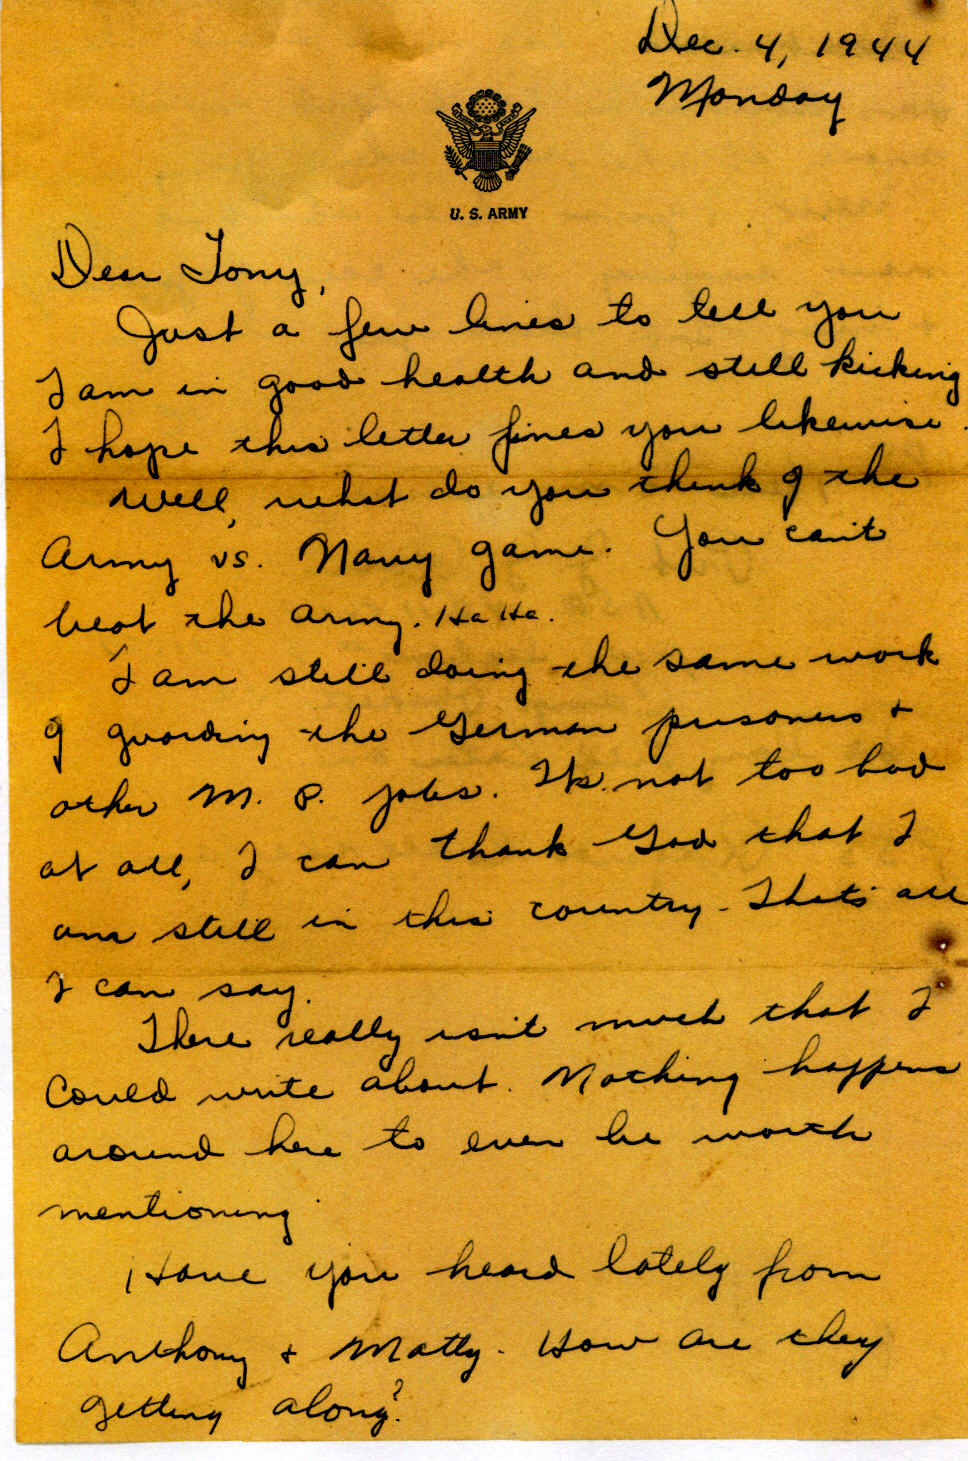 Dec. 4, 1944
Monday
U. S. ARMY
Dear Tony,
Just a few lines to tell you
I am in good health and still kicking
I hope this letter fines you likewise.
Well, what do you think of the
Army vs. Navy game. You can't
beat the army. Ha Ha.
I am still doing the same work
of guarding the German prisoners +
other M. P. jobs. Its not too bad
at all, I can thank God that I
am still in this country. Thats all
I can say.
There really isn't much that I
could write about. Nothing happens
around here to even be worth
mentioning.
Have you heard lately from
Anthony + Matty. How are they
getting along?